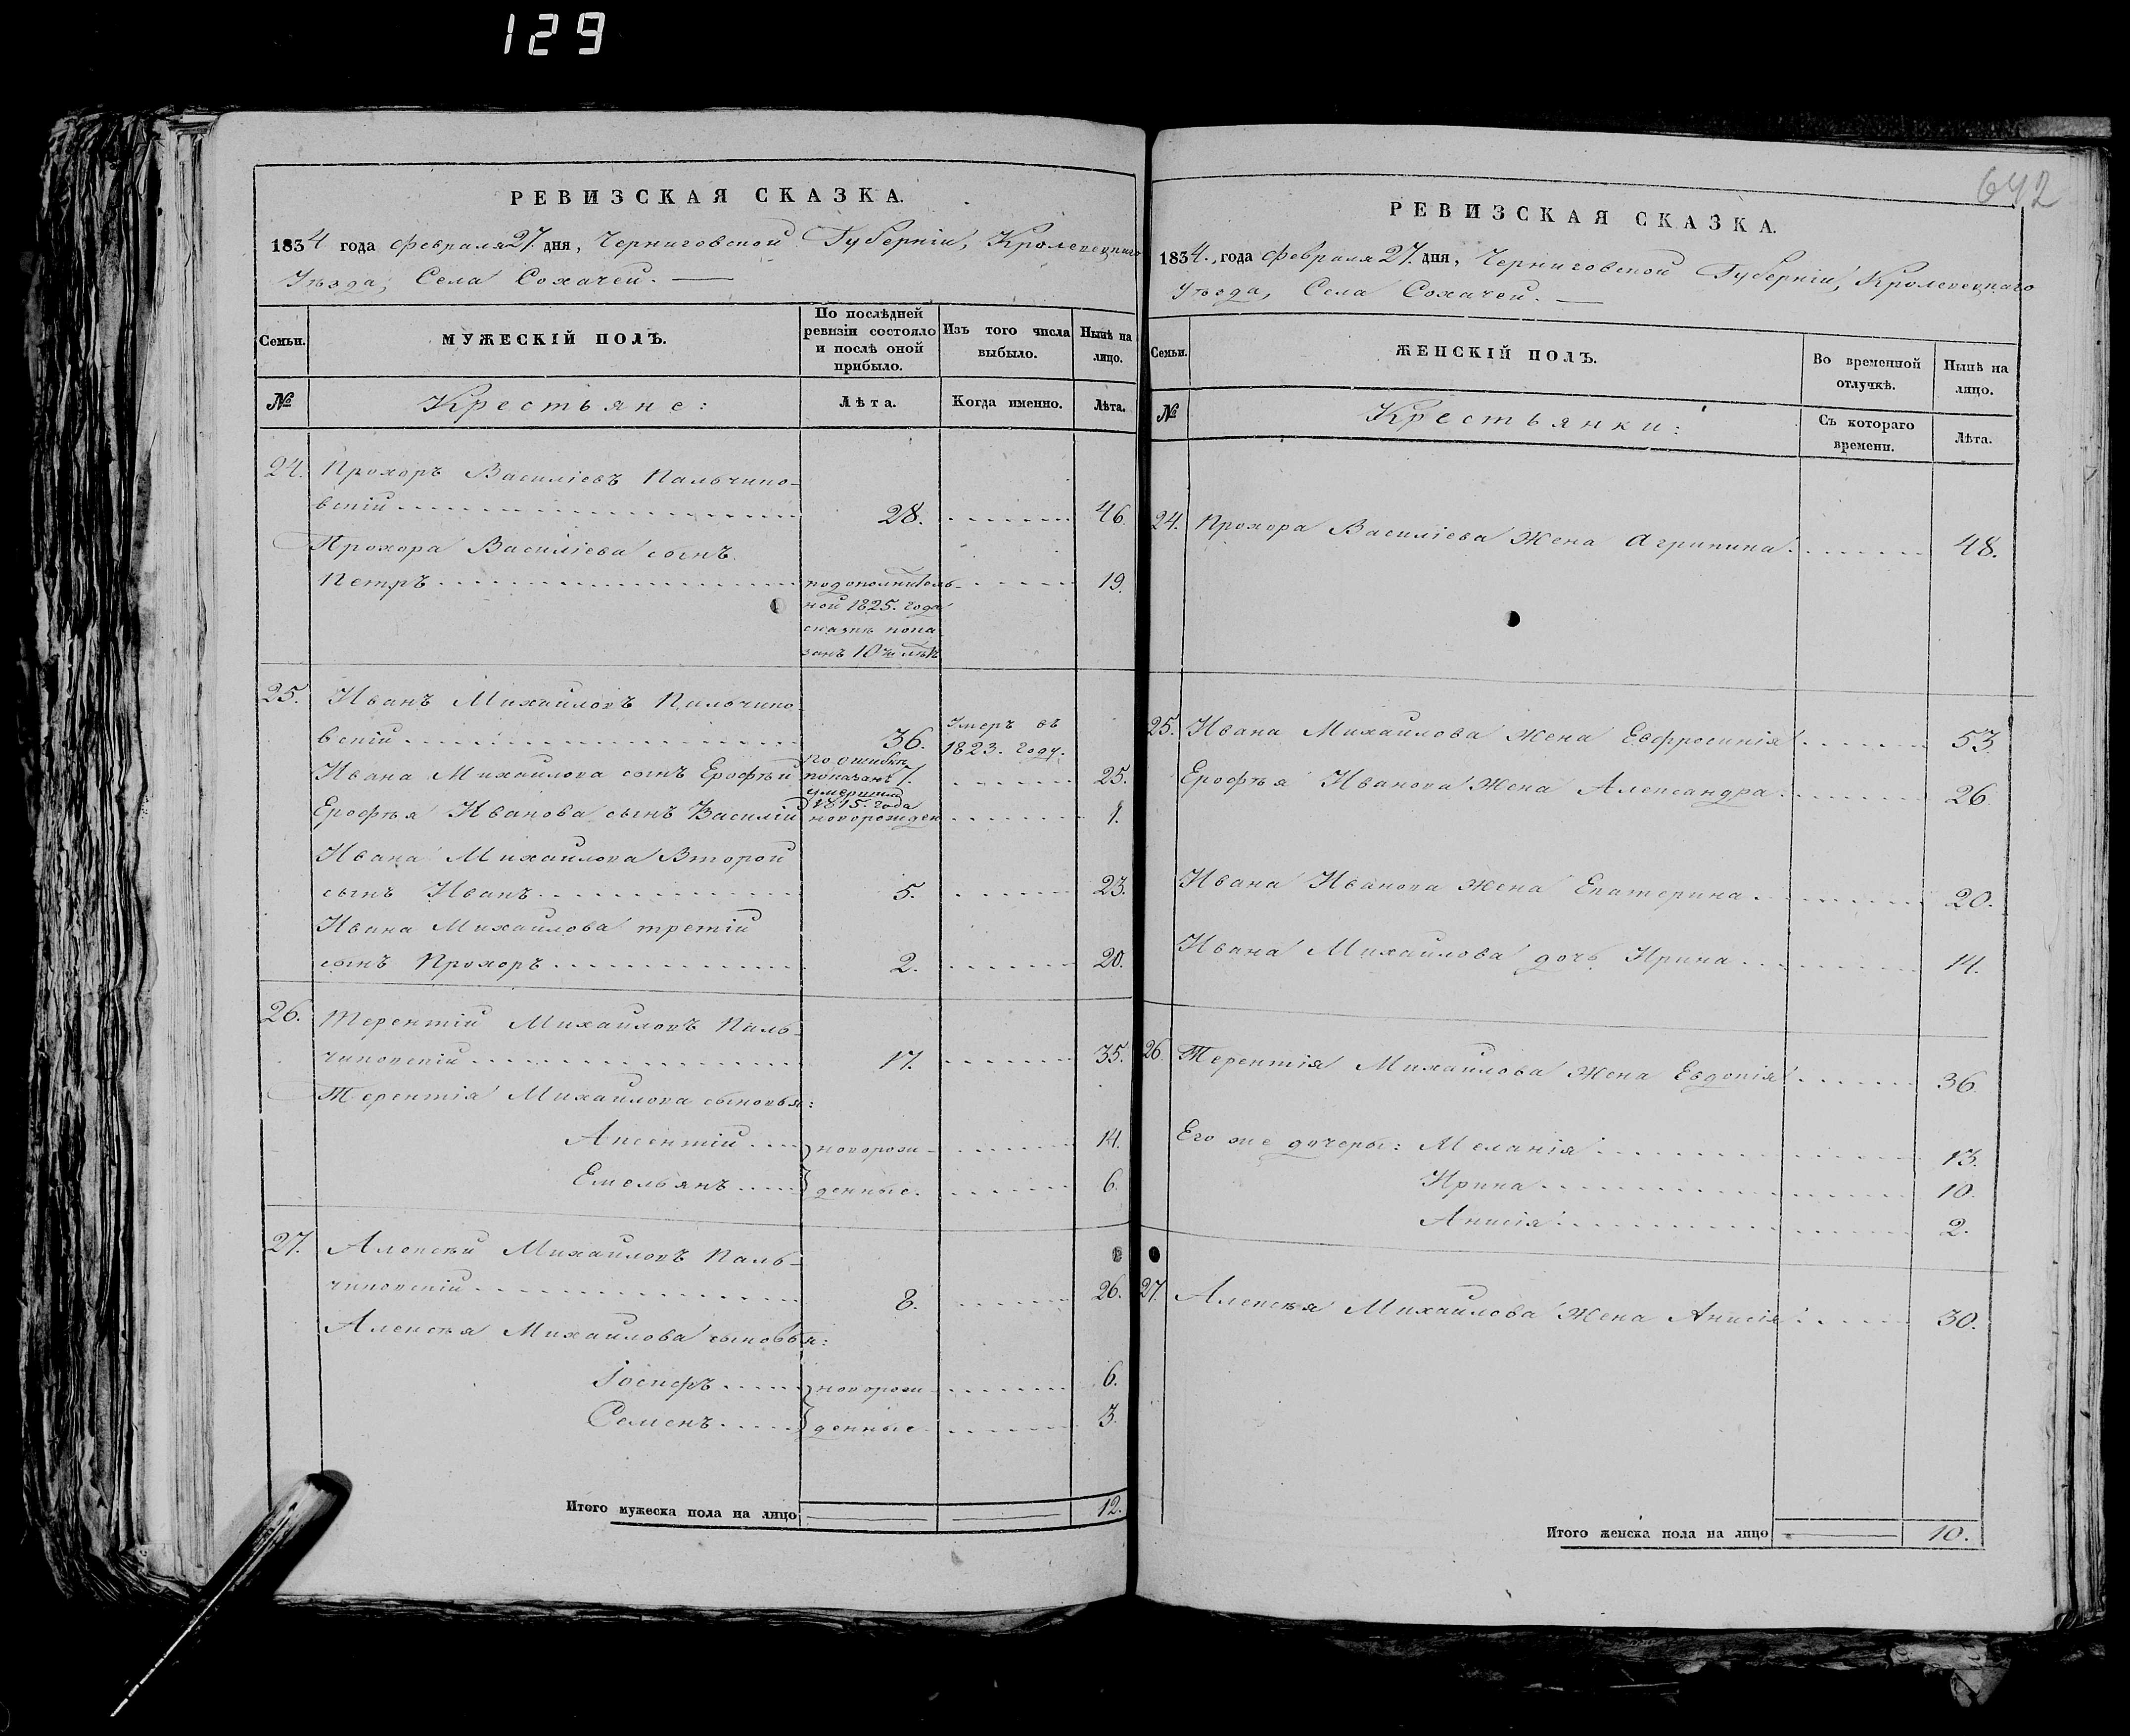 129
РЕВИЗСКАЯ СКАЗКА.
1834 года февраля 27. дня, Черниговской Губерніи, Кролевецкаго
Уѣзда, Села Сохачей.
Семьи.
МУЖЕСКІЙ ПОЛЪ.
По послѣдней
ревизіи состояло
и послѣ оной
прибыло.
Изъ того числа
выбыло.
Нынѣ на
лицо.
№
Крестьяне:
Лѣта.
Когда именно.
Лѣта.
24. Прохоръ Василіевъ Пальчико-
вскій 28. 46.
Прохора Василіева сынъ
Петръ подополнитель- 19.
ной 1825. года
сказкѣ пока
занъ 10ти лѣтъ
25. Иванъ Михайловъ Пальчико-
Умеръ въ
вскій 36. 1823. году.
по ошибкѣ
Ивана Михайлова сынъ Ерофѣй показанъ 7. 25.
умершимъ
1815. года
Ерофѣя Иванова сынъ Василій новорожден 1.
Ивана Михайлова Второй
сынъ Иванъ 5. 23.
Ивана Михайлова третій
сынъ Прохоръ 2. 20.
26. Терентій Михайловъ Паль-
чиковскій 17. 35.
Терентія Михайлова сыновья:
Аксентій новорож- 14.
Емельянъ денные. 6.
27. Алексѣй Михайловъ Паль-
чиковскій 8. 26.
Алексѣя Михайлова сыновья:
Іосифъ новорож- 6.
Семенъ денные 3.
Итого мужеска пола на лицо 12.
642
РЕВИЗСКАЯ СКАЗКА.
1834. года февраля 27. дня, Черниговской Губерніи, Кролевецкаго
Уѣзда, Села Сохачей.
Семьи.
ЖЕНСКІЙ ПОЛЪ.
Во временной
отлучкѣ.
Нынѣ на
лицо.
№
Крестьянки:
Съ котораго
времени.
Лѣта.
24. Прохора Василіева Жена Агрипина 48.
25. Ивана Михайлова Жена Евфросинія 53
Ерофѣя Иванова Жена Александра 26
Ивана Иванова Жена Екатерина 20.
Ивана Михайлова дочь Ирина 14.
26. Терентія Михайлова Жена Евдокія 36
Его же дочери: Меланія 13.
Ирина 10.
Анисія 2.
27. Алексѣя Михайлова Жена Анисія 30.
Итого женска пола на лицо 10.